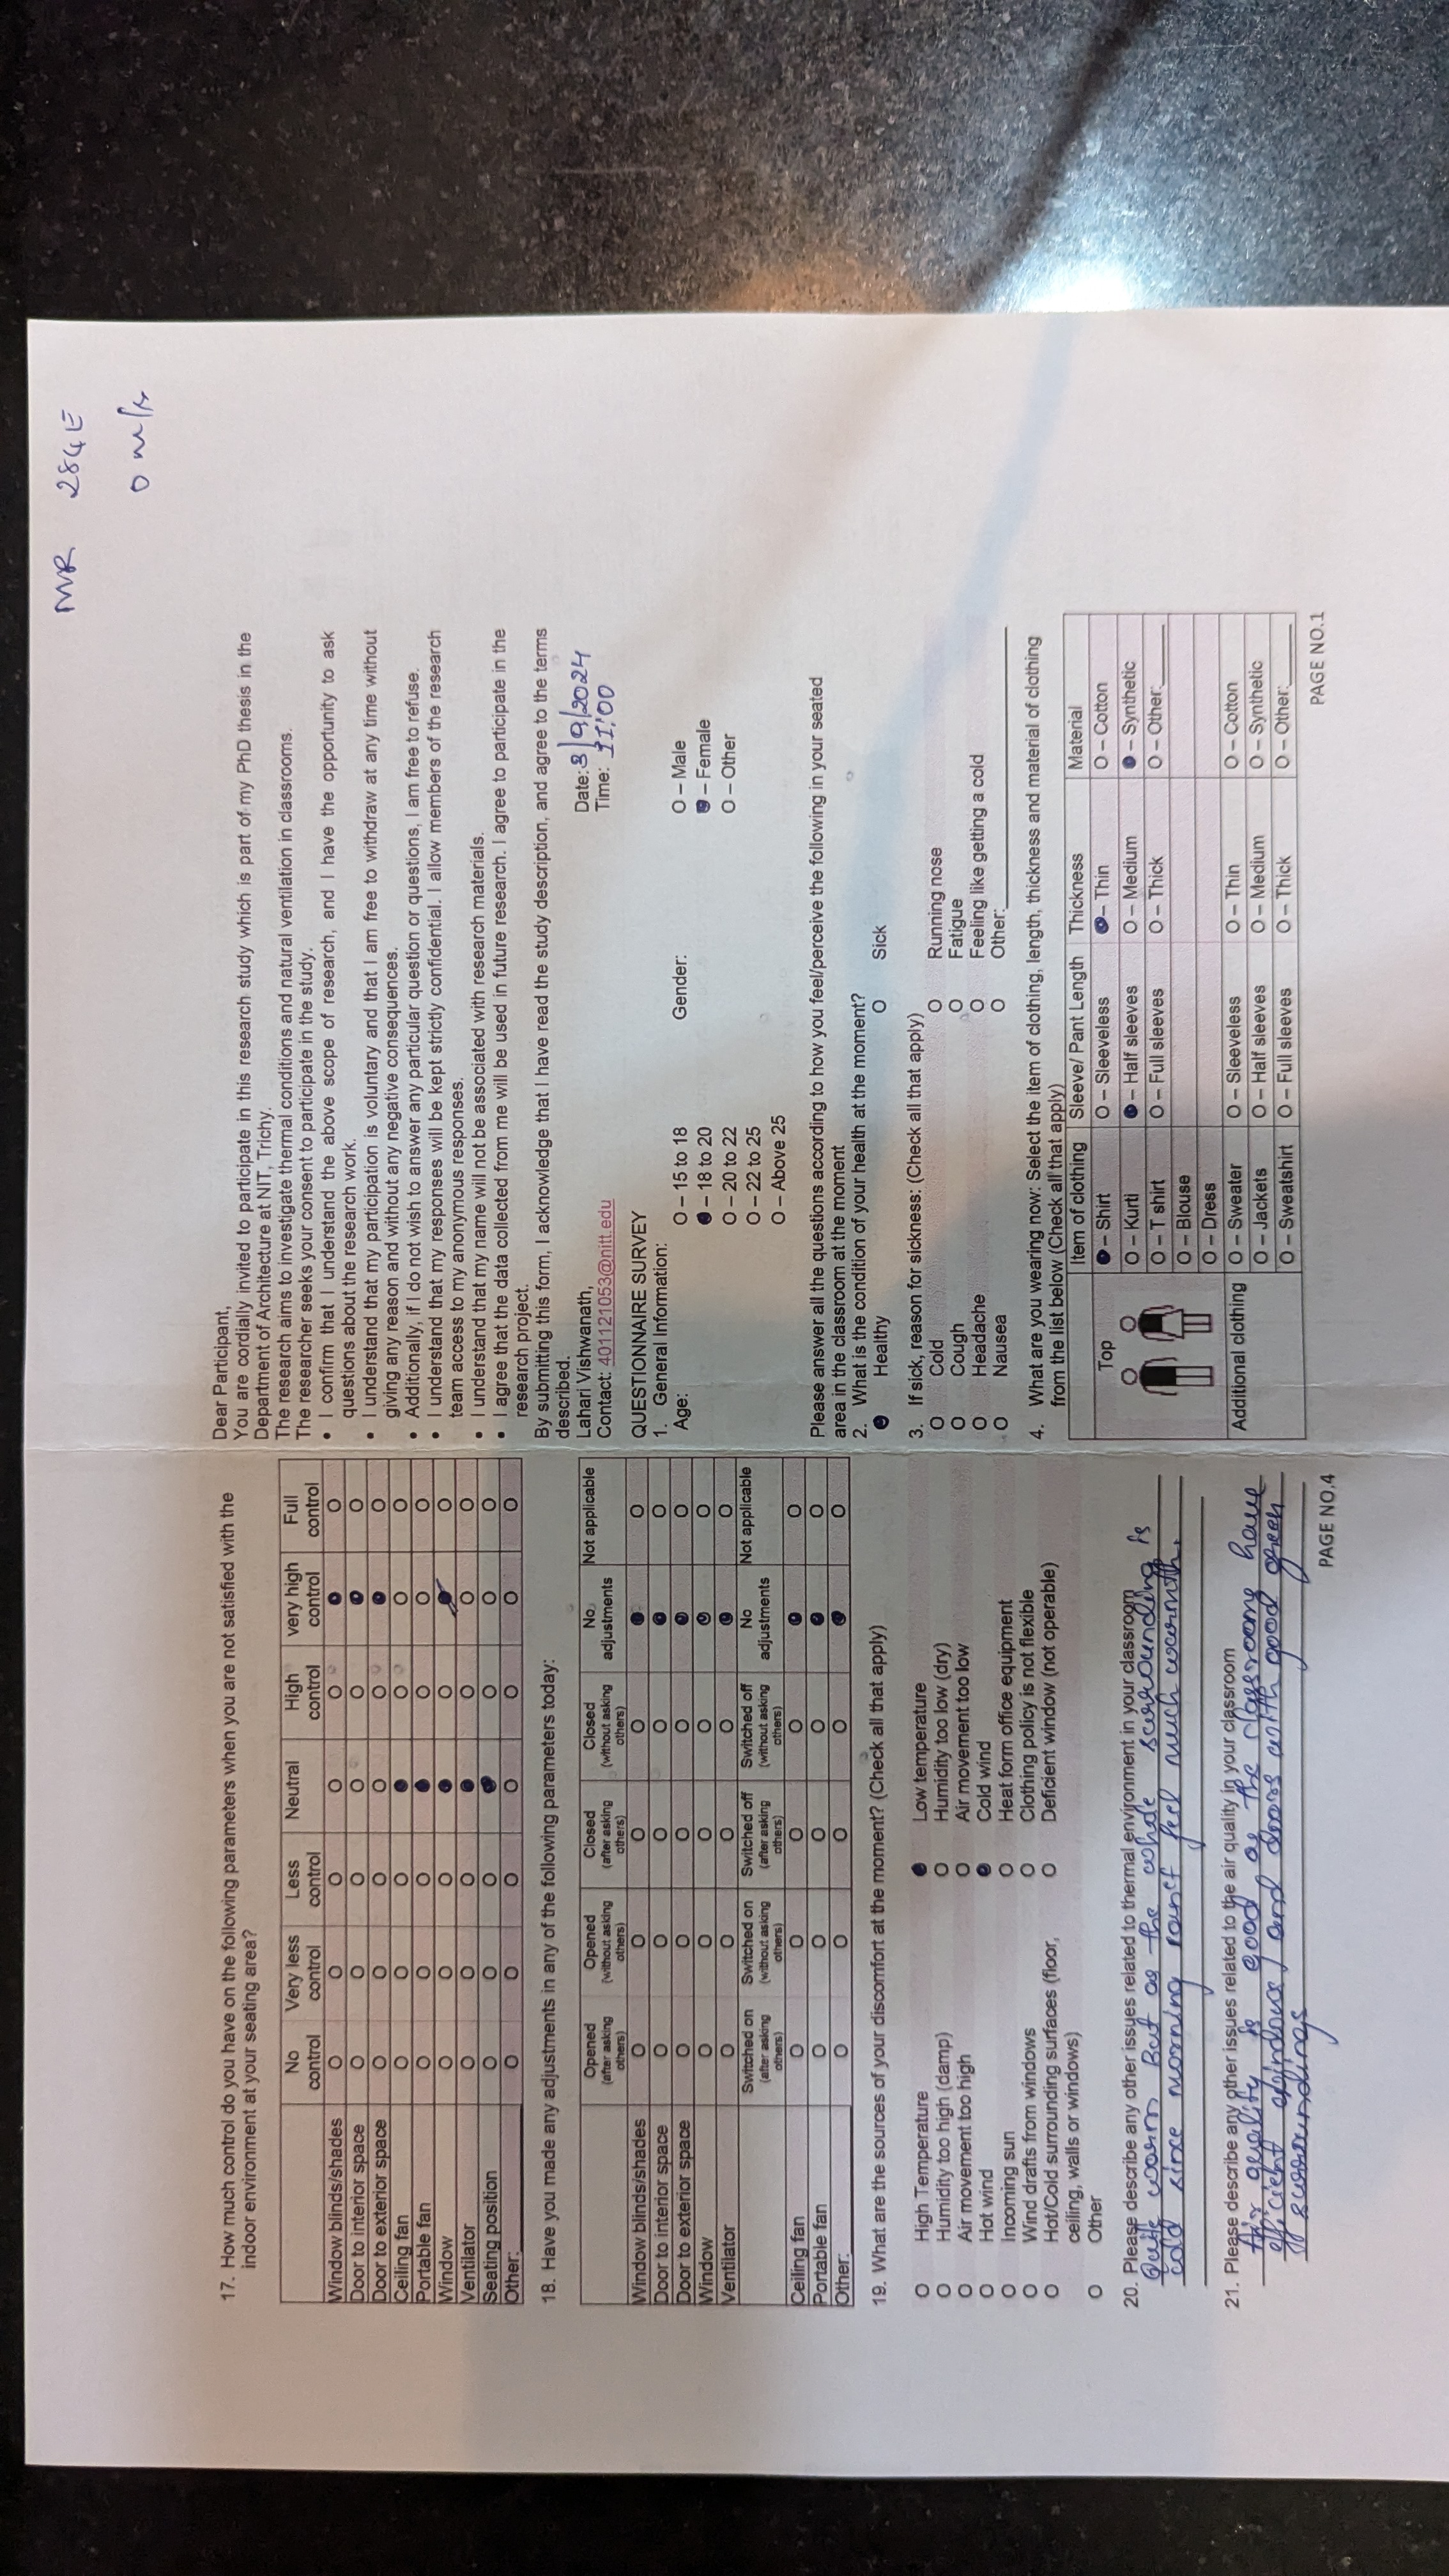 MR 284E
0 m/s
17. How much control do you have on the following parameters when you are not satisfied with the
indoor environment at your seating area?
No control Very less control Less control Neutral High control very high control Full control
Window blinds/shades O O O O O ● O
Door to interior space O O O O O ● O
Door to exterior space O O O O O ● O
Ceiling fan O O O ● O O O
Portable fan O O O ● O O O
Window O O O ● O ● O
Ventilator O O O ● O O O
Seating position O O O ● O O O
Other: O O O O O O O
18. Have you made any adjustments in any of the following parameters today:
Opened (after asking others) Opened (without asking others) Closed (after asking others) Closed (without asking others) No adjustments Not applicable
Window blinds/shades O O O O ● O
Door to interior space O O O O ● O
Door to exterior space O O O O ● O
Window O O O O ● O
Ventilator O O O O ● O
Switched on (after asking others) Switched on (without asking others) Switched off (after asking others) Switched off (without asking others) No adjustments Not applicable
Ceiling fan O O O O ● O
Portable fan O O O O ● O
Other: O O O O ● O
19. What are the sources of your discomfort at the moment? (Check all that apply)
O High Temperature ● Low temperature
O Humidity too high (damp) O Humidity too low (dry)
O Air movement too high O Air movement too low
O Hot wind ● Cold wind
O Incoming sun O Heat form office equipment
O Wind drafts from windows O Clothing policy is not flexible
O Hot/Cold surrounding surfaces (floor, O Deficient window (not operable)
ceiling, walls or windows)
O Other
20. Please describe any other issues related to thermal environment in your classroom
Quite warm But as the whole surrounding is
cold since morning can't feel much warmth.
21. Please describe any other issues related to the air quality in your classroom
Air quality is good as the classrooms have
efficient windows and doors with good green
surroundings
PAGE NO.4
Dear Participant,
You are cordially invited to participate in this research study which is part of my PhD thesis in the
Department of Architecture at NIT, Trichy.
The research aims to investigate thermal conditions and natural ventilation in classrooms.
The researcher seeks your consent to participate in the study.
• I confirm that I understand the above scope of research, and I have the opportunity to ask
questions about the research work.
• I understand that my participation is voluntary and that I am free to withdraw at any time without
giving any reason and without any negative consequences.
• Additionally, if I do not wish to answer any particular question or questions, I am free to refuse.
• I understand that my responses will be kept strictly confidential. I allow members of the research
team access to my anonymous responses.
• I understand that my name will not be associated with research materials.
• I agree that the data collected from me will be used in future research. I agree to participate in the
research project.
By submitting this form, I acknowledge that I have read the study description, and agree to the terms
described.
Lahari Vishwanath, Date: 3/9/2024
Contact: 401121053@nitt.edu Time: 11:00
QUESTIONNAIRE SURVEY
1. General Information:
Age: O – 15 to 18 Gender: O – Male
● – 18 to 20 ● – Female
O – 20 to 22 O – Other
O – 22 to 25
O – Above 25
Please answer all the questions according to how you feel/perceive the following in your seated
area in the classroom at the moment
2. What is the condition of your health at the moment?
● Healthy O Sick
3. If sick, reason for sickness: (Check all that apply)
O Cold O Running nose
O Cough O Fatigue
O Headache O Feeling like getting a cold
O Nausea O Other:
4. What are you wearing now: Select the item of clothing, length, thickness and material of clothing
from the list below (Check all that apply)
Item of clothing Sleeve/ Pant Length Thickness Material
Top ● – Shirt O – Sleeveless ● – Thin O – Cotton
O – Kurti ● – Half sleeves O – Medium ● – Synthetic
O – T shirt O – Full sleeves O – Thick O – Other:
O – Blouse
O – Dress
Additional clothing O – Sweater O – Sleeveless O – Thin O – Cotton
O – Jackets O – Half sleeves O – Medium O – Synthetic
O – Sweatshirt O – Full sleeves O – Thick O – Other:
PAGE NO.1